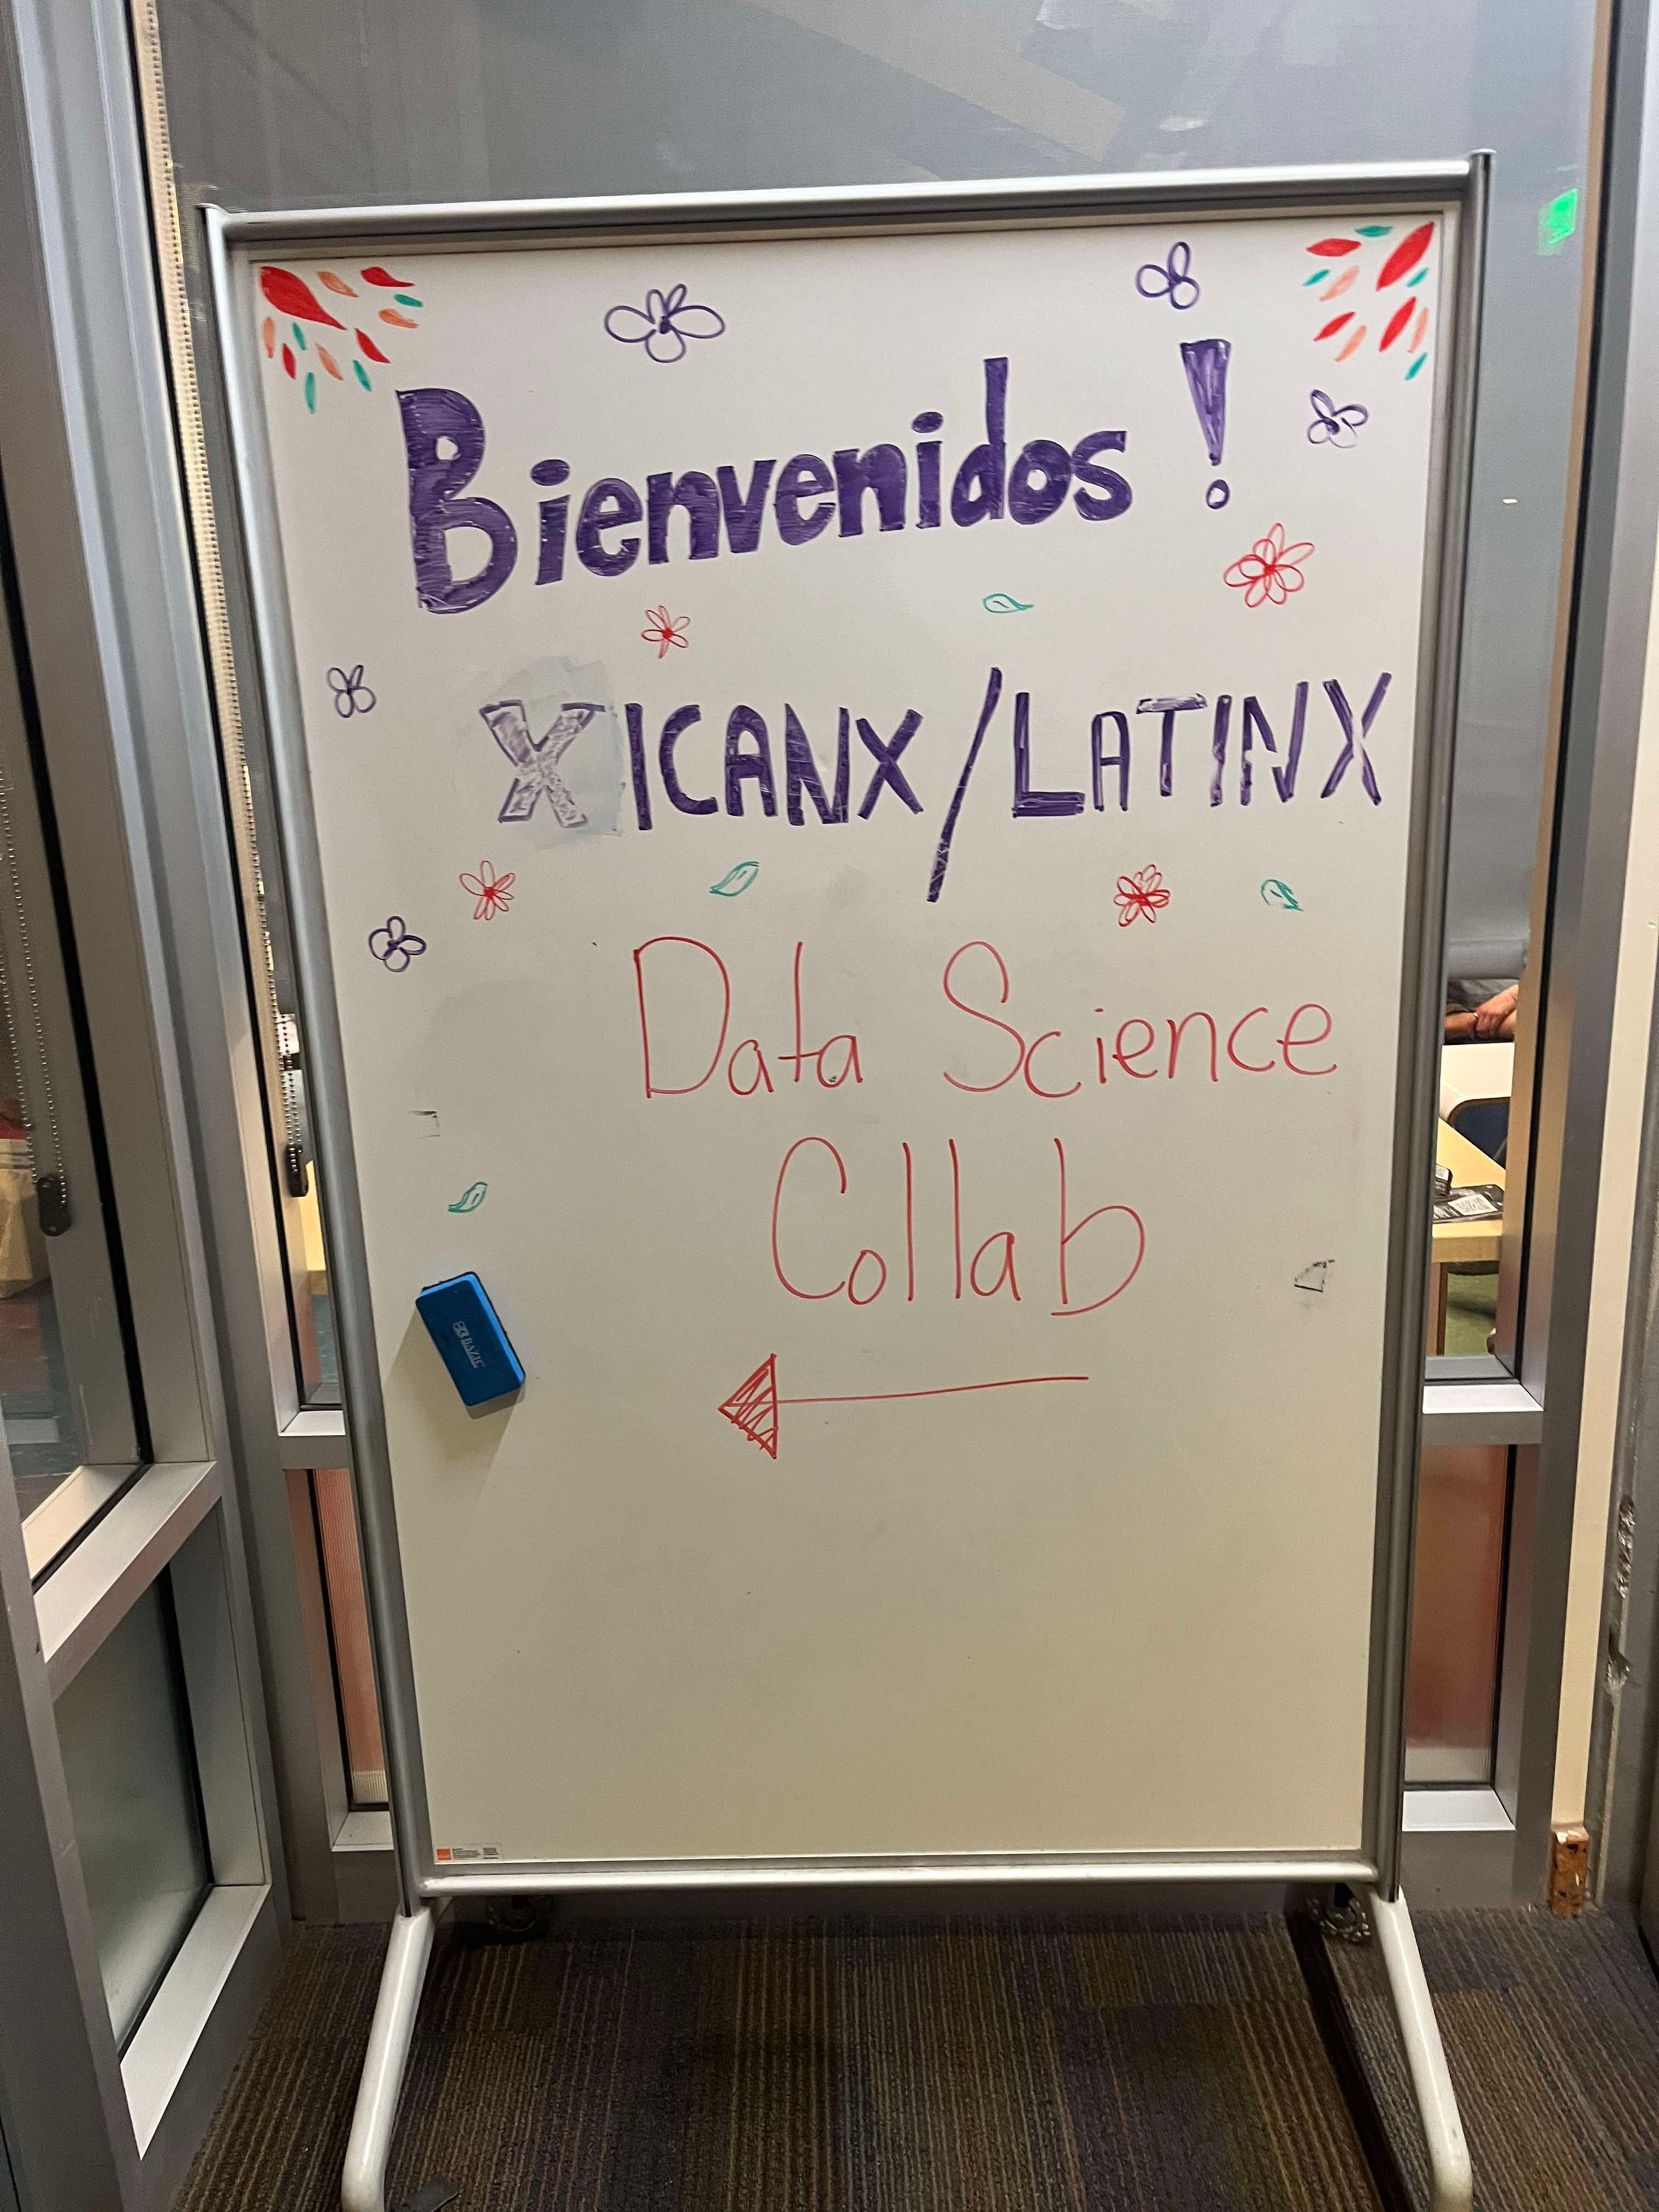 Bienvenidos !
XICANX/LATINX
Data Science
Collab
BAZIC